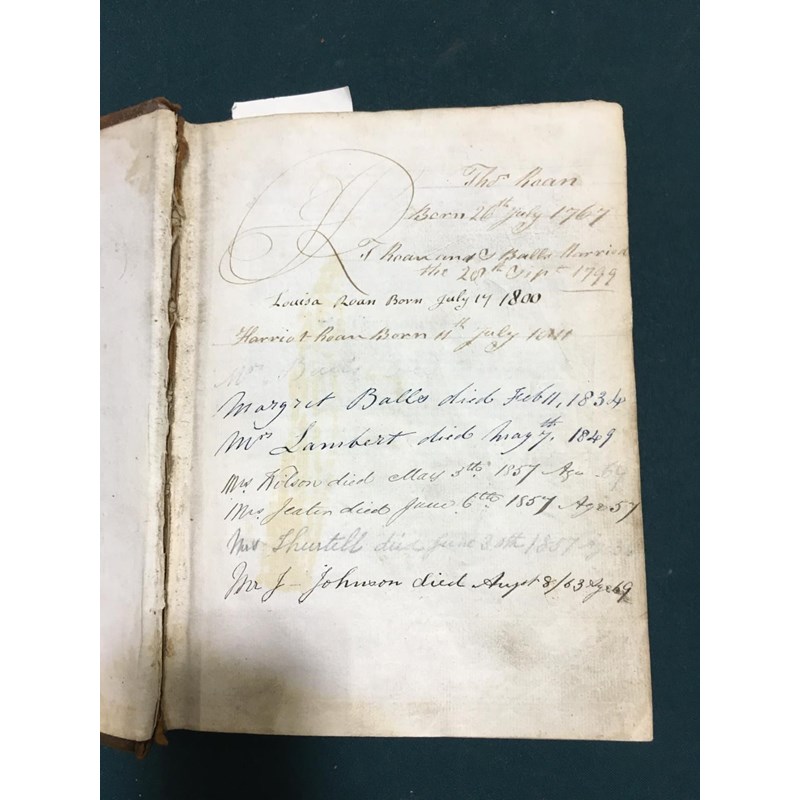 Thos Roan
Born 26th July 1767
T Roan and Balls Married
the 28th Sept 1799
Louisa Roan Born July 14 1800
Harriot Roan Born 11th July
Mrs
Margret Balls died Feb 11, 1834
Mrs Lambert died May 7th. 1849
Mrs Kitson died May 3th 1857 Age
Mrs Jeater died June 6th 1857 Age 57
Mrs Thurtell died June 30th 1857
Mr J - Johnson died Augst 8/63 Age 69